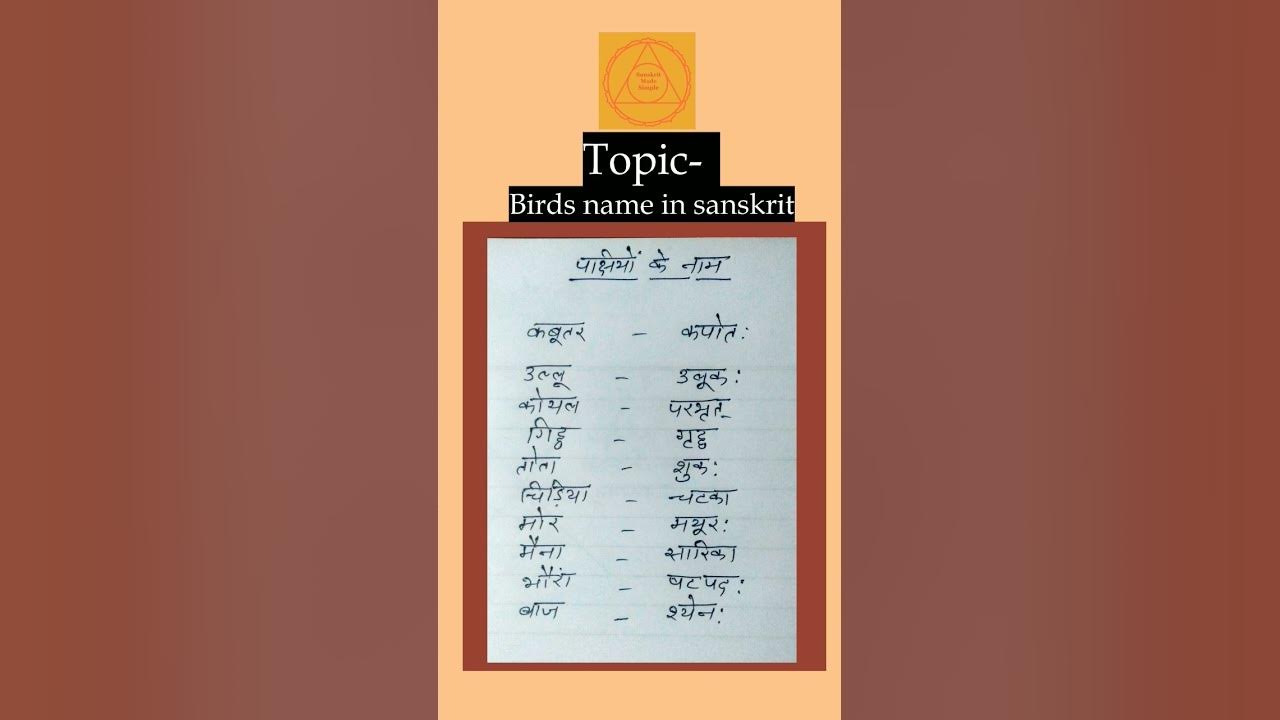 Sanskrit
Made
Simple
Topic-
Birds name in sanskrit
पक्षियों के नाम
कबूतर - कपोत:
उल्लू - उलूक:
कोयल - परभृत्
गिद्ध - गृद्ध
तोता - शुक:
चिड़िया - चटका
मोर - मयूर:
मैना - सारिका
भौरां - षटपद:
बाज - श्येन: